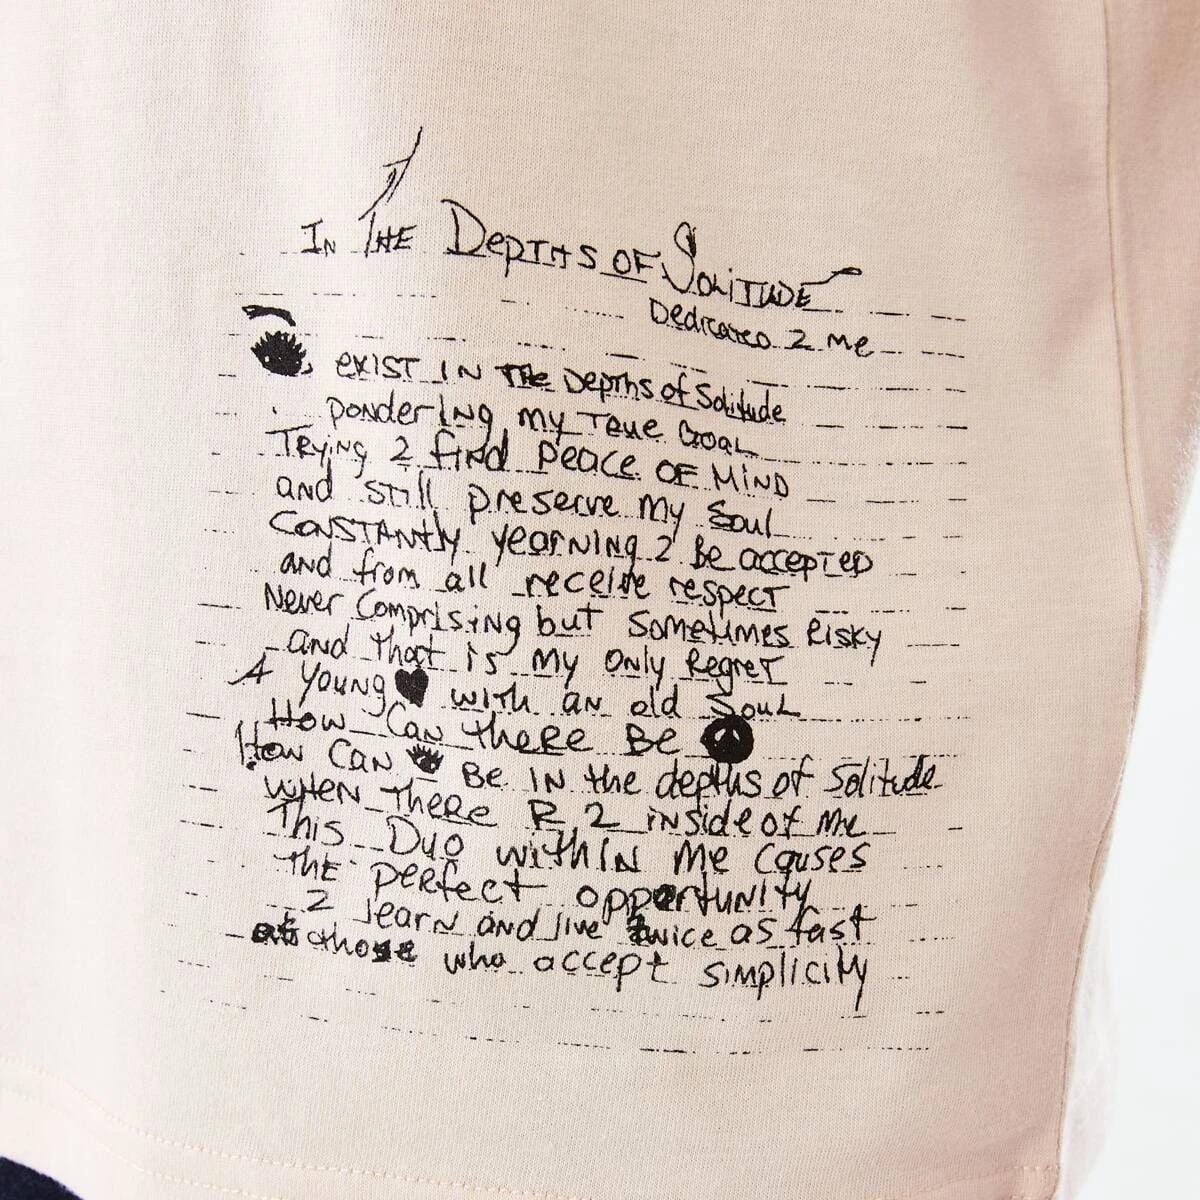 In The Depths of Solitude
Dedicated 2 Me
exist in The Depths of Solitude
pondering my True Goal
Trying 2 find peace of Mind
and still preserve my Soul
Constantly yearning 2 Be accepted
and from all receive respect
Never Comprising but sometimes Risky
and that is my only Regret
A young with an old Soul
How Can there Be
How Can Be in the depths of Solitude
when there R 2 inside of Me
This Duo within Me causes
The perfect opportunity
2 learn and live twice as fast
as those who accept simplicity